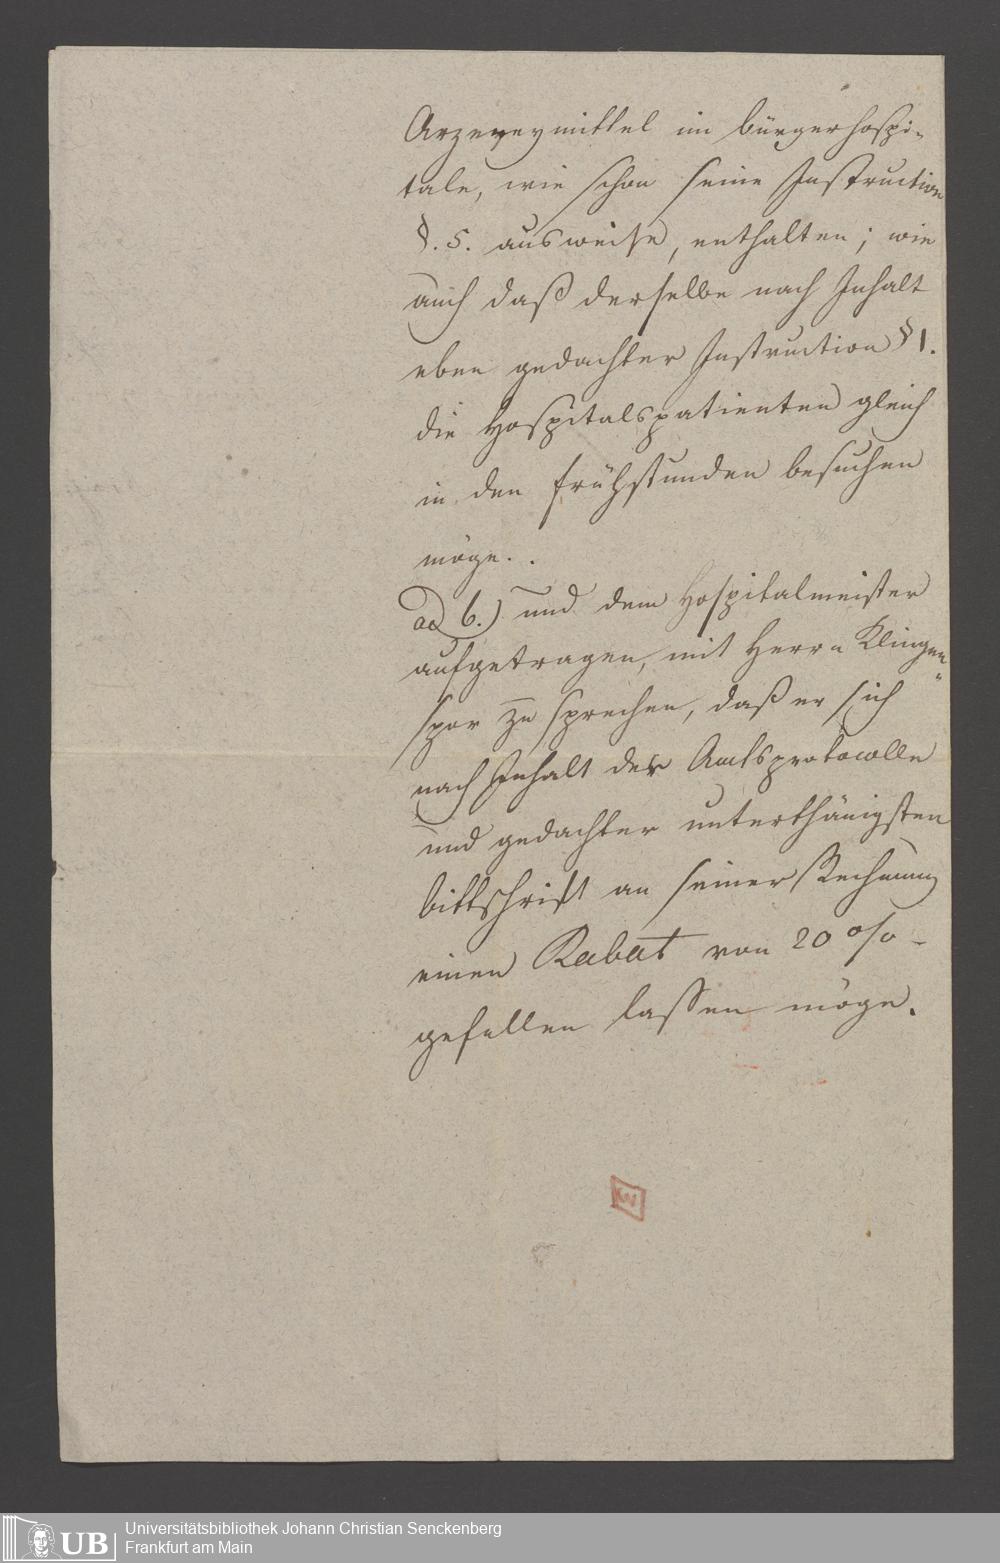 Arzeneymittel im bürgerhospi-
tale, wie schon seine Instruction
§. 5. ausweise, enthalten; wie
auch daß derselbe nach Inhalt
eben gedachter Instruction § 1.
die Hospitalspatienten gleich
in den frühstunden besuchen
möge. .
ad 6.) und dem Hospitalmeister
aufgetragen, mit Herrn Klingen"
spor zu sprechen, daß er sich
nach Inhalt der Amtsprotocolle
und gedachter unterthänigsten
bittschrift an seiner Rechnung
einen Rabat von 20 o/o -
gefallen lassen möge.
W
UB
Universitätsbibliothek Johann Christian Senckenberg
Frankfurt am Main